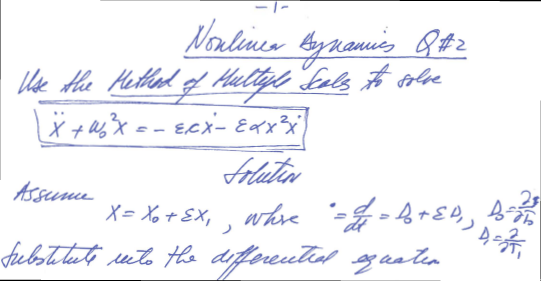 -1-
Nonlinear Dynamics Q#2
Use the Method of Multiple Scales to solve
ẍ + ω₀²x = - εcẋ - εαx²ẋ
Solution
Assume
x = x₀ + εx₁ , where ˙ = d/dt = D₀ + εD₁ , D₀ = ∂/∂T₀
D₁ = ∂/∂T₁
Substitute into the differential equation